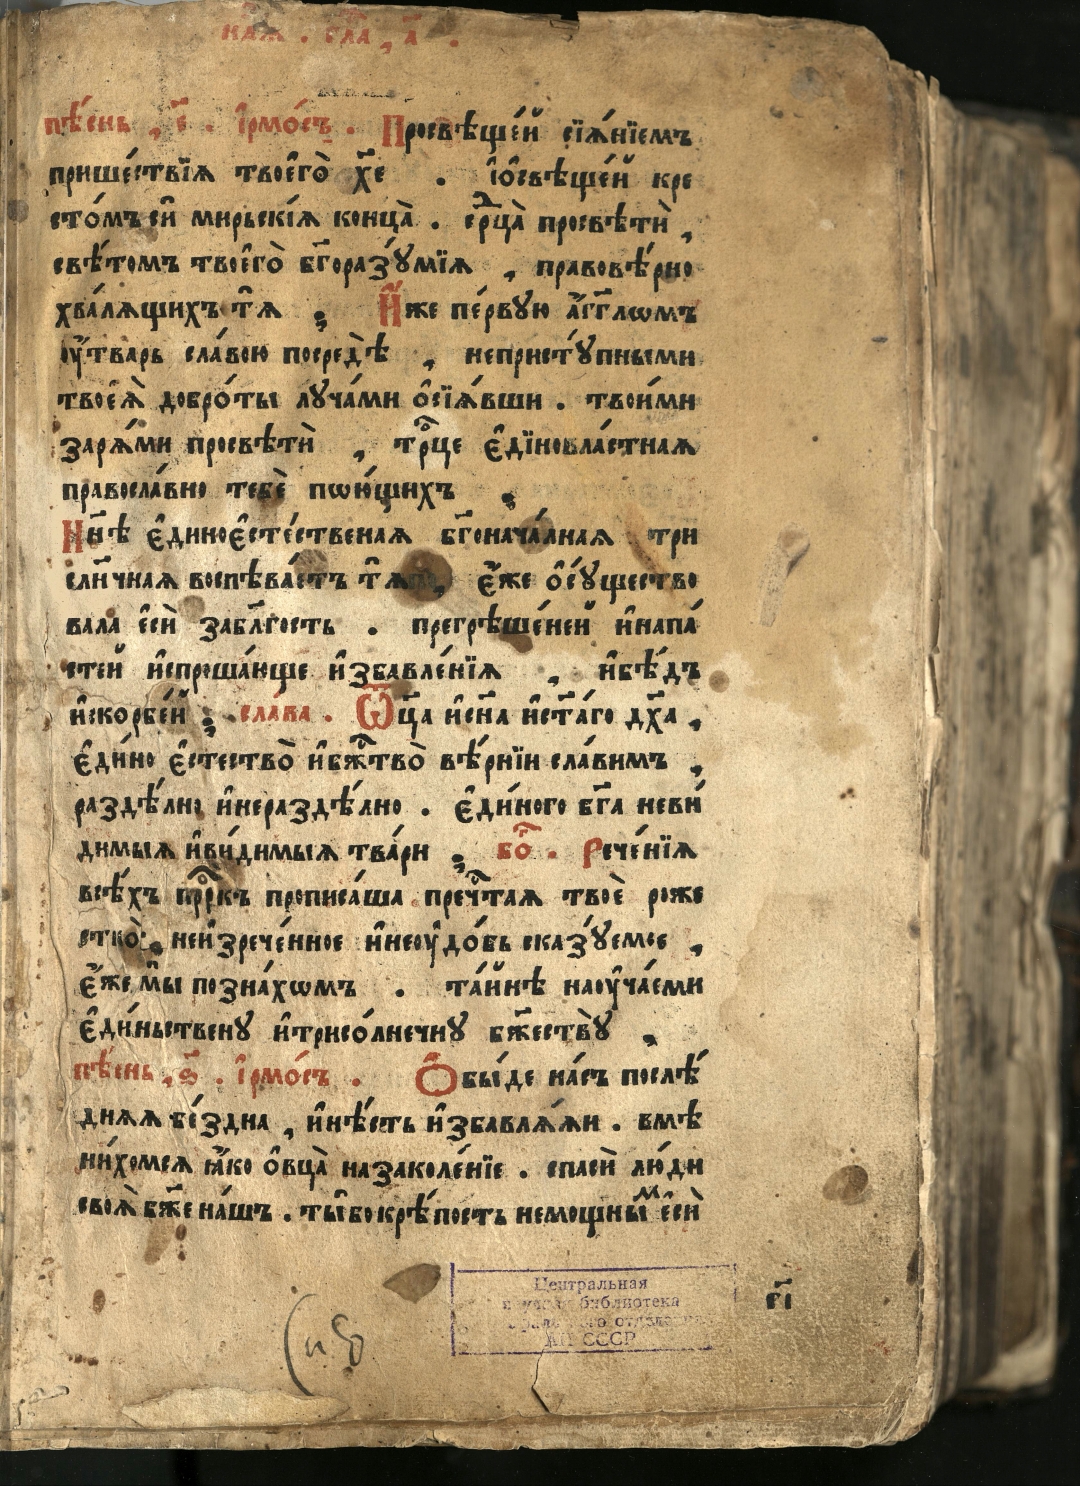 гла҃, а҃ .
пѣ́снь , є҃ . і҆рмо́съ . Просвѣще́й сїѧ́нїемъ
прише́ствїѧ твоего̀ хе҃ . і҆ѻ҆свѣще́й кре
сто́мъ си̑ мирьскі́ѧ конца̀ . срⷣца̀ просвѣтѝ ,
свѣ́томъ твоего̀ бг҃оразꙋ́мїѧ , правовѣ́рно
хва́лѧщихъ тѧ҃ ; И҆́же пе́рвую а҆́гг҃лѡмъ
ᲂу҆́тварь славою посредѣ̀ , непристꙋ́пными
твоеѧ̀ добро́ты лꙋча́ми ѻ҆сїѧ́вши . твои́ми
зарѧ́ми просвѣтѝ , трⷪ҇це є҆дїновла́стнаѧ
правосла́вно тебѐ пѡю́щихъ ;
Нн҃ѣ є҆диноє҆сте́ственаѧ бг҃онача́лнаѧ три
сли́чнаѧ воспѣва́етъ тѧ҃ , є҆́же ѻ҆сꙋ́щество
вала є҆сѝ забл҃гость . прегрѣше́ней и҆напа́
стей и҆спроша́юще и҆збавле́нїѧ , и҆бѣ́дъ
и҆скорбе́й ; сла́ва . Ѿц҃а и҆сн҃а и҆ст҃а́го дх҃а ,
є҆ди́но є҆стество̀ и҆бжⷭ҇тво̀ вѣ́рнїи сла́вимъ ,
раздѣ́лно и҆нераздѣ́лно . є҆ди́ного бг҃а неви́
димыѧ и҆ви́димыѧ тва́ри ; бо҃ . Рече́нїѧ
всѣ́хъ прⷪ҇ркъ прописа́ша пречⷭ҇таѧ твоѐ роже
ство̀ , неи҆зрече́нное и҆неᲂу҆до́бь сказꙋ́емое ,
є҆́же мы̑ позна́хѡмъ . та́йнѣ наᲂу҆ча́еми
є҆ди́ньственꙋ и҆трисо́лнечнꙋ бж҃ествꙋ̀ ,
пѣ́снь , ѕ҃ . і҆рмо́съ . Ѻ҆бы́де на́съ послѣ́
днѧѧ бе́здна , и҆нѣ́сть и҆збавлѧ́ѧи . вмѣ
ни́хомсѧ ꙗ҆́ко ѻ҆вца̀ назаколе́нїе . спасѝ лю́ди
своѧ̀ бж҃е на́шъ . ты̑ бо крѣ́пость немощны́мъ є҆сѝ
Центральная
библиотека
АН СССР
є҃і